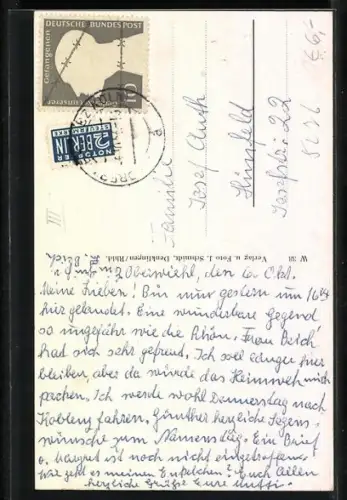 DEUTSCHE BUNDESPOST
Gefangenen
unserer
10
NOTOPFER
2 BERLIN
STEUERMARKE
6,-
III
Familie
Josef Auth
Hünfeld
22
W 38 Verlag u. Foto J. Schmidt, Denklingen/Rhld.
Oberwiehl, den 6. Okt.
Meine Lieben! Bin nur gestern um 16
hier gelandet. Eine wunderbare Gegend
so ungefähr wie die Rhön. Frau Beich
hat sich sehr gefreut. Ich soll länger hier
bleiben, aber da würde das Heimweh mich
packen. Ich werde wohl Donnerstag nach
Koblenz fahren. Günther herzliche Segens-
wünsche zum Namenstag. Ein Brief
v. Margret ist noch nicht eingetroffen.
Wie geht es meinen Enkelchen? Euch allen
herzliche Grüße Eure Mutti